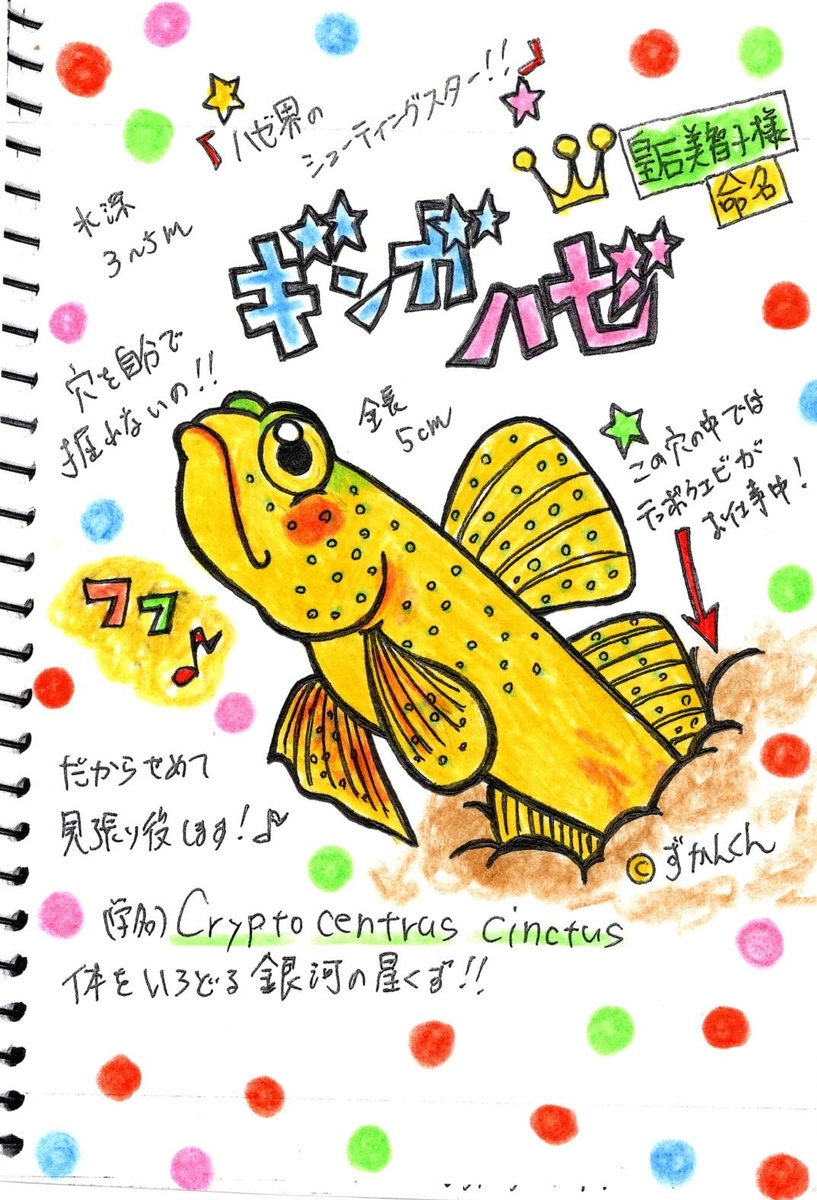 『ハゼ界の
シューティングスター!!』
皇后美智子様
命名
水深
3~5m
ギンガハゼ
穴を自分で
掘れないの!!
全長
5cm
この穴の中では
テッポウエビが
お仕事中!
フフ♪
だからせめて
見張り役します!♪
©ずかんくん
(学名)Cryptocentrus cinctus
体をいろどる銀河の星くず!!